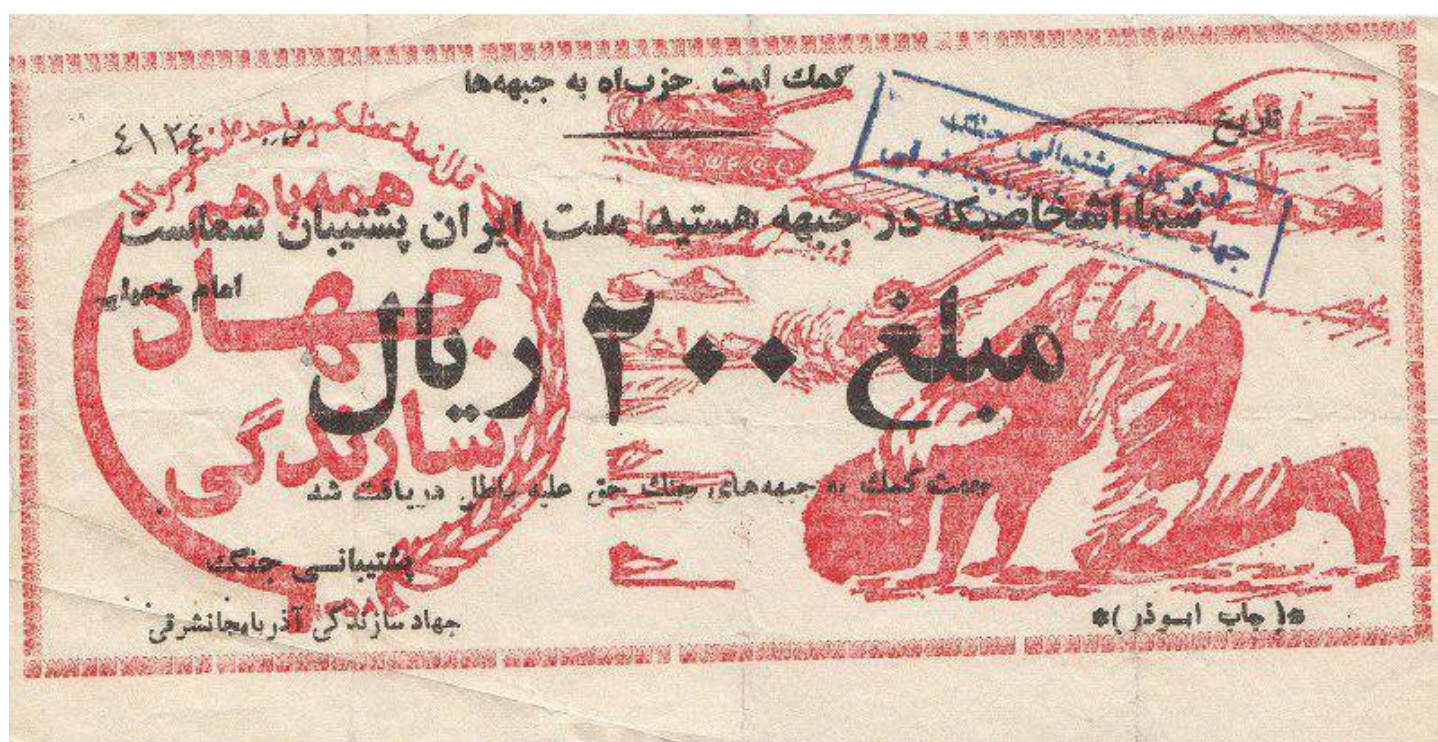 کمك امت حزب‌اه به جبهه‌ها
تاریخ
٤١٢٤
همه با هم
جهاد
سازندگی
شما اشخاصیکه در جبهه هستید، ملت ایران پشتیبان شماست
امام خمینی
مبلغ ۲۰۰ ریال
جهت کمك به جبهه‌های جنك حق علیه باطل دریافت شد
پشتیبانی جنگ
جهاد سازندگی آذربایجانشرقی
*( چاپ ابوذر )*